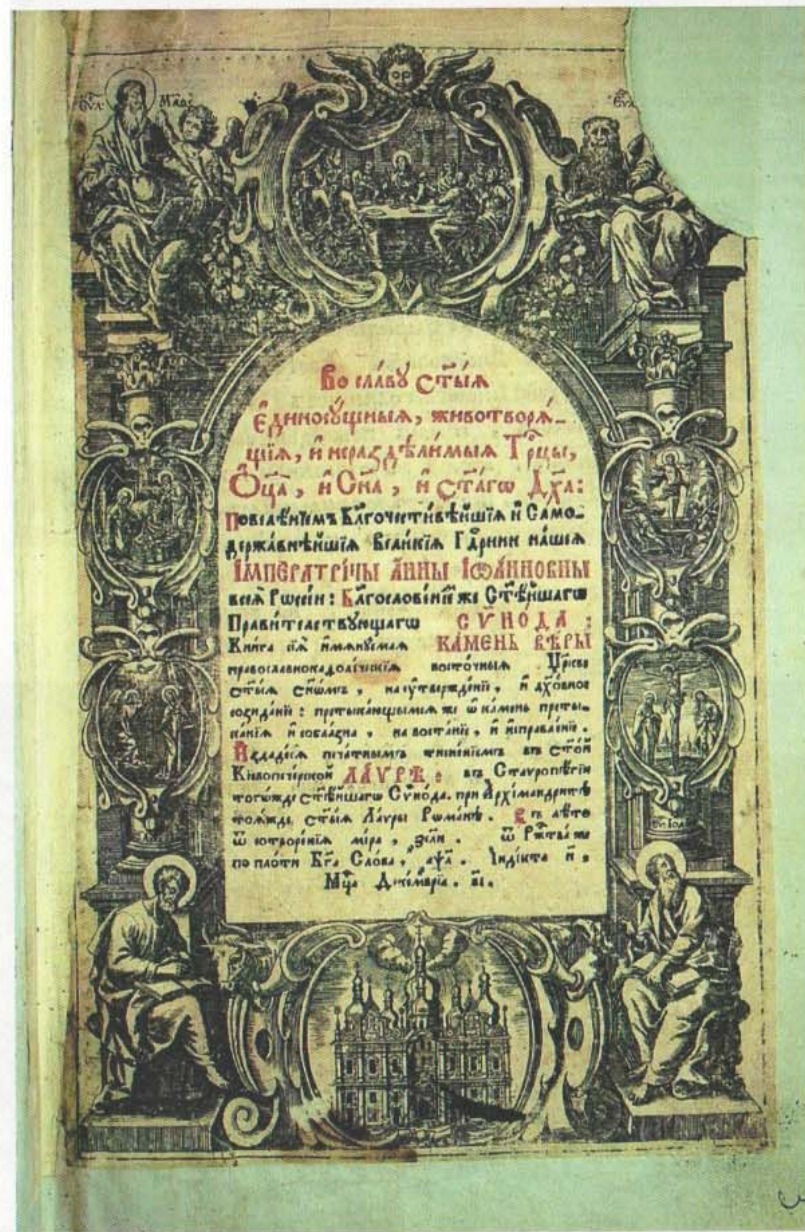 Еѵл: Маѳ:
Еѵл:
Во сла́вꙋ ст҃ы́ѧ
Є҆диносꙋ́щныѧ, животворѧ́-
щїѧ, и҆ нераздѣли́мыѧ Трⷪ҇цы,
Ѻ҆ц҃а̀, и҆ Сн҃а, и҆ ст҃а́гѡ Дх҃а:
Повелѣ́нїемъ Бл҃гочести́вѣйшїѧ и҆ Само-
держа́внѣйшїѧ Вели́кїѧ Гдⷭ҇рни на́шеѧ
І҆МПЕРАТРІ́ЦЫ А҆́ННЫ І҆ѠА́ННОВНЫ
всеѧ̀ Рѡссі́и: Бл҃гослове́нїемже Ст҃ѣ́йшагѡ
Прави́телствꙋющагѡ СѴ́НОДА:
Кни́га сїѧ̀ и҆менꙋ́емаѧ КА́МЕНЬ ВѢ́РЫ
православнокаѳоли́ческїѧ восто́чныѧ Цр҃кве
ст҃ы́ѧ сн҃ѡ́мъ, на ᲂу҆твержде́нїе, и҆ дх҃о́вное
созида́нїе: претыка́ющымсѧ же ѡ҆ ка́мень преты-
ка́нїѧ и҆ собла́зна, на воста́нїе, и҆ и҆справле́нїе.
И҆здаде́сѧ печа́тнымъ тисне́нїемъ въ ст҃о́й
Кїевопече́рской ЛА́ѴРѢ: въ Стаѵропи́гїи
тогѡ́жде ст҃ѣ́йшагѡ Сѵ́нода. при А҆рхїмандри́тѣ
тоѧ́жде ст҃ы́ѧ Ла́ѵры Рѡма́нѣ. Въ лѣ́то
ѿ сотворе́нїѧ мі́ра, ҂зсл҃и. ѿ Ржⷭ҇тва́же
по пло́ти Бг҃а Сло́ва, ҂аѱ҃л. І҆ндї́кта и҃,
Мцⷭ҇а Деке́мврїа. в҃і.